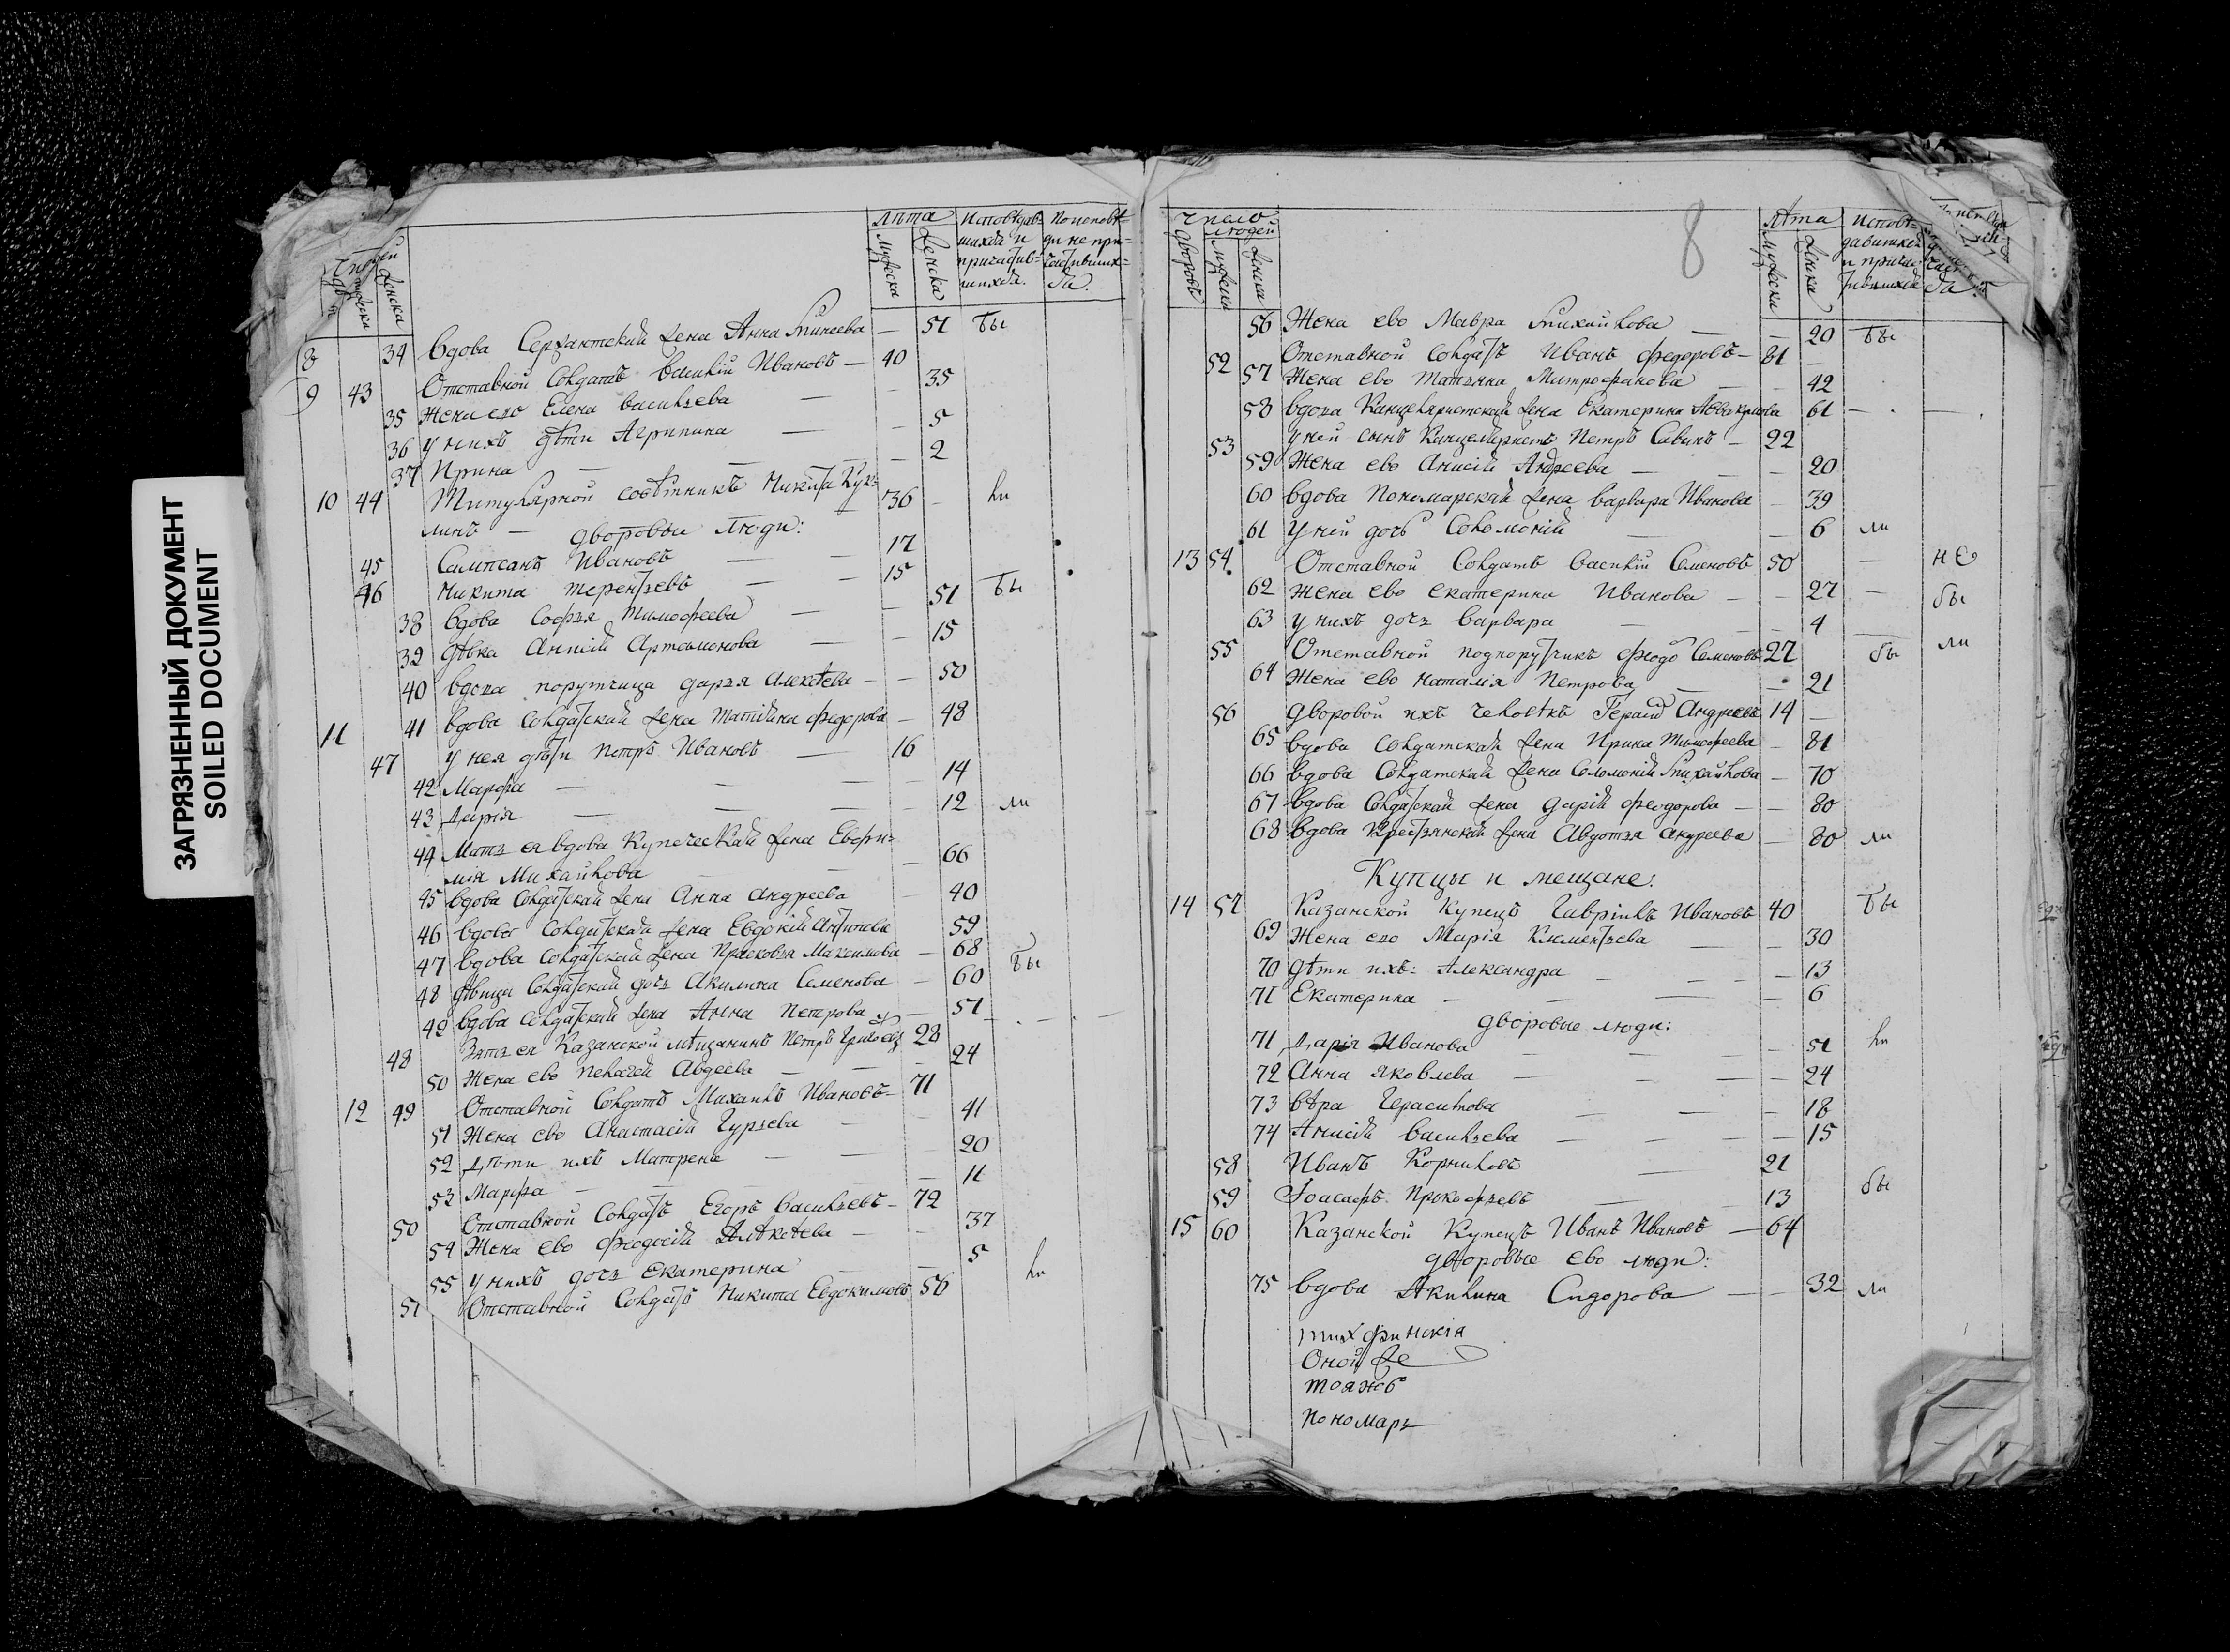 ЗАГРЯЗНЕННЫЙ ДОКУМЕНТ
SOILED DOCUMENT
Лѣта
Мужеска
Женска
Исповѣдав=
шихся и
причастив=
шихся.
По исповѣ=
ди не при=
частивших=
ся.
8 34 вдова Сержантская жена Анна — 51 бы
9 43 Отставной Солдатъ Василий Ивановъ — 40
35 Жена ево Елена васильева — 35
36 У нихъ дѣти Агрипина — 5
37 Ирина — 2
10 44 Титулярной совѣтникъ Никита 36 — ли
линъ — дворовыи люди:
45 Сампсанъ Ивановъ — 17
46 Никита терентьевъ — 15
38 вдова Софья тимофеева — 51 бы
39 дѣвка Анисия Артамонова — 15
40 вдова порутчица дарья алексѣева — 50
11 41 вдова солдатская жена татияна федорова — 48
47 у нея дѣти петръ Ивановъ — 16
42 Марфа — 14
43 Дария — 12 ли
44 Мать ея вдова Купеческая жена Евфи=
мия Михайлова — 66
45 вдова солдатская жена Анна андреева — 40
46 вдова солдатская жена Евдокия Антипова 59
47 вдова солдатская жена Прасковья Максимова — 68
48 дѣвица солдатская дочь Акилина Семенова — 60 бы
49 вдова солдатская жена Анна петрова — 51
48 Зять ея Казанской мѣщанинъ Петръ 28
50 Жена ево пелагея Авдеева — 24
12 49 Отставной Солдатъ Михаилъ Ивановъ — 71
51 Жена ево Анастасия Гурьева — 41
52 Дѣти ихъ Матрена — 20
53 Марфа — 11
50 Отставной Солдатъ Егоръ васильевъ — 72
54 Жена ево феодосия Алѣксѣева — 37
55 У нихъ дочь екатерина — 5
51 Отставной Солдатъ Никита Евдокимовъ 56 ли
8
число
дворовъ
людей
Лѣта
Мужеска
Женска
Исповѣ=
давшихся
и причас
тившихся
56 Жена ево Мавра — 20 бы
52 Отставной Солдатъ Иванъ федоровъ — 81
57 Жена ево татьяна Митрофанова — 42
58 вдова Канцеляристская жена Екатерина 61
53 У ней сынъ Канцеляристъ Петръ Савинъ — 22
59 Жена ево Анисия Андреева — 20
60 вдова пономарская жена варвара Иванова — 39
61 У ней дочь Соломония — 6 ли
13 54 Отставной Солдатъ василий Семеновъ 50 — не
62 жена ево екатерина Иванова — 27 — бы
63 у нихъ дочь варвара — 4
55 Отставной подпорутчикъ Семеновъ 27 бы ли
64 Жена ево наталия петрова — 21
56 дворовой ихъ человѣкъ Андреевъ 14 —
65 вдова солдатская жена Ирина тимофеева — 81
66 вдова Солдатская жена Соломония — 70
67 вдова Солдатская жена дария феодорова — 80
68 вдова Крестьянская жена Авдотья андреева — 80 ли
Купцы и мещане:
14 57 Казанской Купецъ Гаврiилъ Ивановъ 40 бы
69 Жена ево Мария Клементьева — 30
70 дѣти ихъ: Александра — 13
71 Екатерина — 6
дворовые люди:
71 Дария Иванова — 51 ли
72 Анна яковлева — 24
73 вѣра Герасимова — 18
74 Анисия васильева — 15
58 Иванъ Корниловъ — 21
59 Iоасафъ прокофьевъ — 13 бы
15 60 Казанской Купецъ Иванъ Ивановъ — 64
дворовые ево люди:
75 вдова Акилина Сидорова — 32 ли
тихфинския
Оной же
тояжъ
пономарь